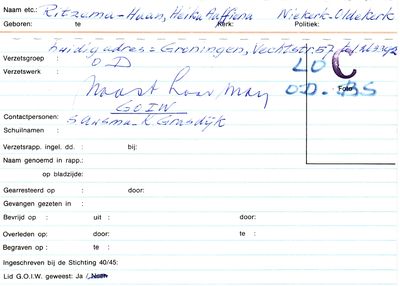 Naam etc.: Ritzema-Haan, Heika Aaffiena Niekerk-Oldekerk
Geboren: te Kerk: Politiek:
huidig adres = Groningen, Vechtstr. 57
Verzetsgroep : O D
Verzetswerk : LO C
naast haar man OD-BS
Foto
GOIW
Contactpersonen: Sansma-K Grasdijk
Schuilnamen :
Verzetsrapp. ingel. dd. : bij:
Naam genoemd in rapp.:
op bladzijde:
Gearresteerd op : door:
Gevangen gezeten in :
Bevrijd op : uit : door:
Overleden op: door: te :
Begraven op : te :
Ingeschreven bij de Stichting 40/45:
Lid G.O.I.W. geweest: Ja / Neen